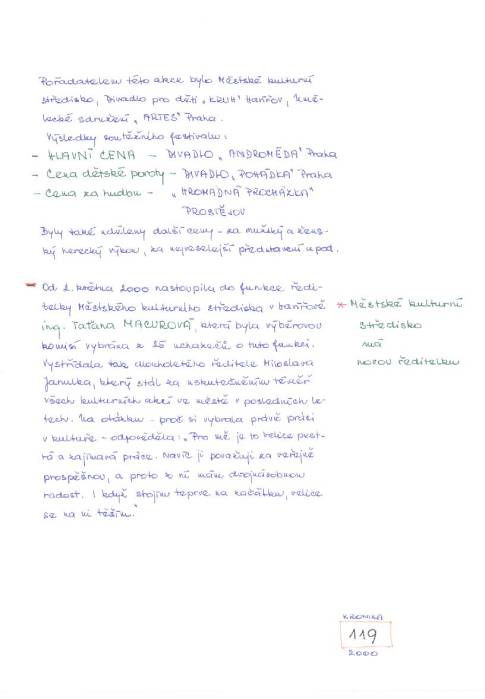 Pořadatelem této akce bylo Městské kulturní
středisko, Divadlo pro děti „KRUH" Havířov, Umě-
lecké sdružení „ARTES" Praha.
Výsledky soutěžního festivalu:
- HLAVNÍ CENA - DIVADLO „ANDROMÉDA" Praha
- Cena dětské poroty - DIVADLO „POHÁDKA" Praha
- Cena za hudbu - „HROMADNÁ PROCHÁZKA"
PROSTĚJOV
Byly také uděleny další ceny - za mužský a žens-
ký herecký výkon, za nejveselejší představení a pod.
- Od 2. května 2000 nastoupila do funkce ředi-
telky Městského kulturního střediska v Havířově
ing. Taťána MACUROVÁ, která byla výběrovou
komisí vybrána z 25 uchazečů o tuto funkci.
Vystřídala tak dlouholetého ředitele Miloslava
který stál za uskutečněním téměř
všech kulturních akcí ve městě v posledních le-
tech. Na otázku - proč si vybrala právě práci
v kultuře - odpověděla: „Pro mě je to velice pest-
rá a zajímavá práce. Navíc ji považuji za veřejně
prospěšnou, a proto to ní mám dvojnásobnou
radost. I když stojím teprve na začátku, velice
se na ni těším."
* Městské kulturní
středisko
má
novou ředitelku
KRONIKA
119
2000